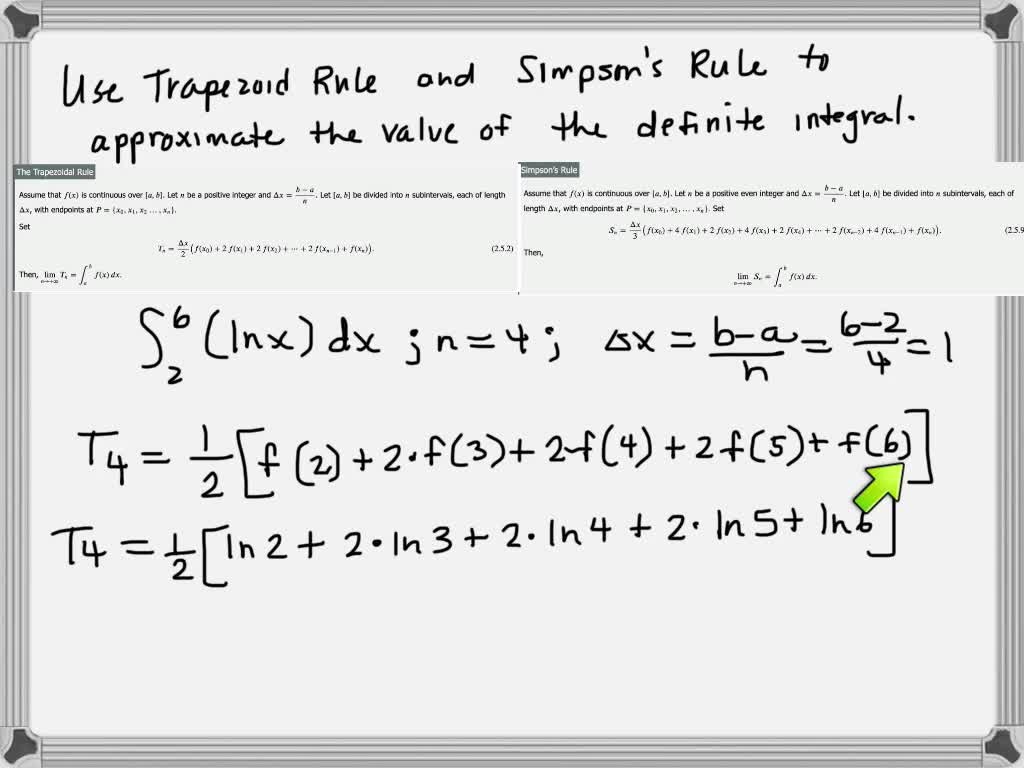 Use Trapezoid Rule and Simpson's Rule to
approximate the value of the definite integral.
The Trapezoidal Rule
Assume that f(x) is continuous over [a, b]. Let n be a positive integer and Δx = (b − a)/n. Let [a, b] be divided into n subintervals, each of length
Δx, with endpoints at P = {x₀, x₁, x₂ …, xₙ}.
Set
Tₙ = Δx/2 (f(x₀) + 2 f(x₁) + 2 f(x₂) + ⋯ + 2 f(xₙ₋₁) + f(xₙ)). (2.5.2)
Then, lim n→+∞ Tₙ = ∫ₐᵇ f(x) dx.
Simpson's Rule
Assume that f(x) is continuous over [a, b]. Let n be a positive even integer and Δx = (b − a)/n. Let [a, b] be divided into n subintervals, each of
length Δx, with endpoints at P = {x₀, x₁, x₂, …, xₙ}. Set
Sₙ = Δx/3 (f(x₀) + 4 f(x₁) + 2 f(x₂) + 4 f(x₃) + 2 f(x₄) + ⋯ + 2 f(xₙ₋₂) + 4 f(xₙ₋₁) + f(xₙ)). (2.5.9
Then,
lim n→+∞ Sₙ = ∫ₐᵇ f(x) dx.
∫₂⁶ (lnx) dx ; n = 4 ; Δx = (b-a)/n = (6-2)/4 = 1
T₄ = 1/2 [f(2) + 2·f(3) + 2f(4) + 2f(5) + f(6)]
T₄ = 1/2 [ln 2 + 2·ln 3 + 2·ln 4 + 2·ln 5 + ln 6]